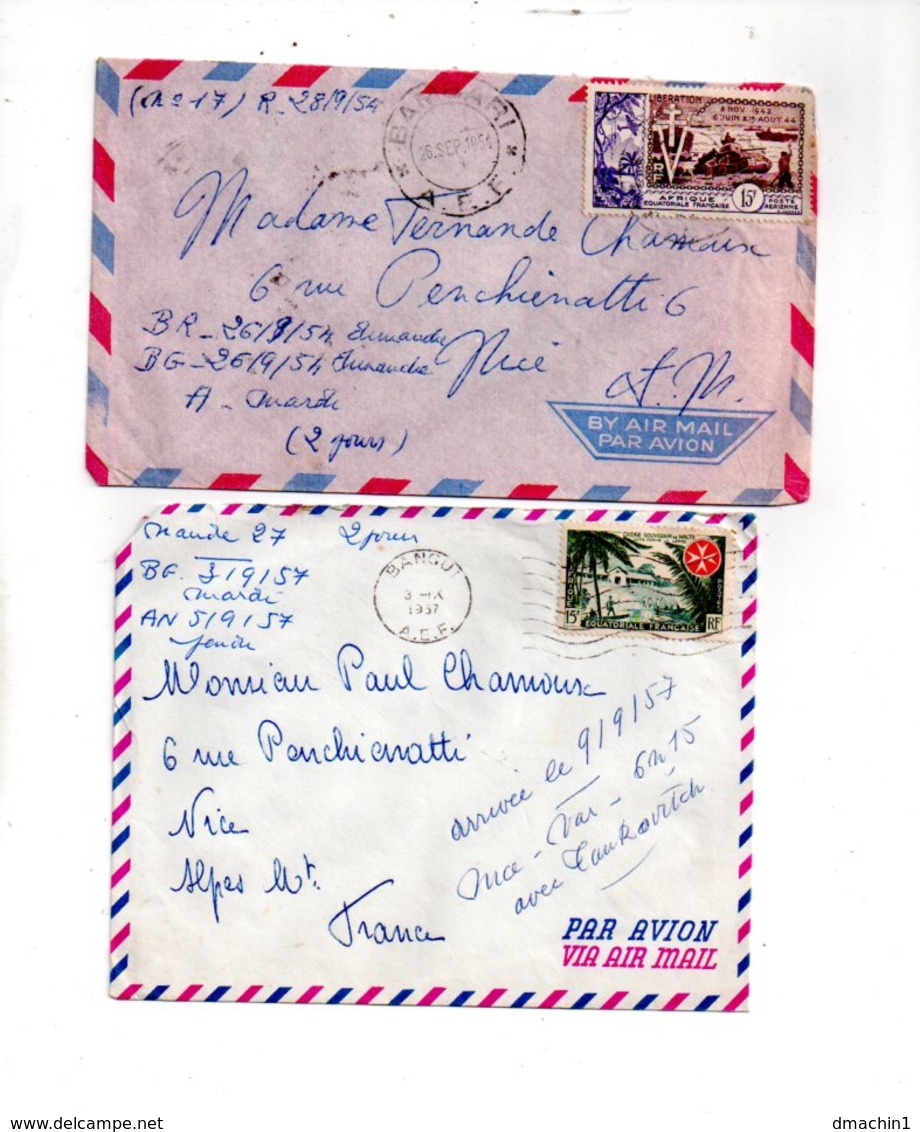 (No 17) R_28/9/54
BAMBARI
26.SEP.1954
A.E.F.
LIBERATION
8 NOV 1942
6 JUIN & 15 AOUT 44
RF
AFRIQUE
EQUATORIALE FRANÇAISE
15F
POSTE
AERIENNE
Madame Fernande Chamoux
6 rue Penchienatti 6
BR_26/9/54 Dimanche
BG_26/9/54 Dimanche
Nice
A_ Mardi
A.M.
(2 jours)
BY AIR MAIL
PAR AVION
27 2 jours
BG. 3/9/57
Mardi
AN 5/9/57
Jeudi
BANGUI
3-IX
1957
A.E.F.
ORDRE SOUVERAIN DE MALTE
AFRIQUE
POSTES
15F
EQUATORIALE FRANÇAISE
RF
Monsieur Paul Chamoux
6 rue Penchienatti
Nice
Alpes Mt.
France
arrivée le 9/9/57
Nice-Var - 6h15
avec
PAR AVION
VIA AIR MAIL
delcampe.net
dmachin1